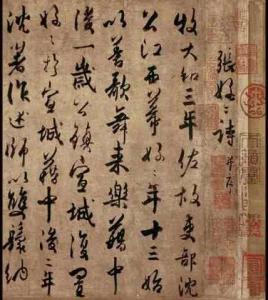 張好好詩 并序
牧大和三年佐故吏部沈
公江西幕好好年十三始
以善歌舞来樂籍中
後一歲公鎮宣城復置
好好於宣城籍中後二年
沈著作述師以雙鬟納